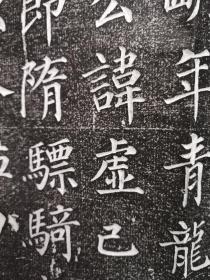 年青龍
公諱虛己
即隋驃騎